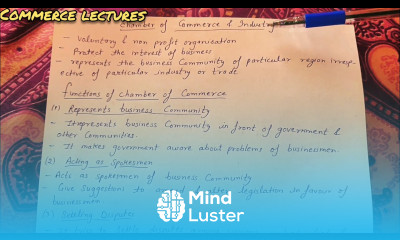 COMMERCE LECTURES
Chamber of Commerce & Industry
- Voluntary & non profit organisation
- Protect the interest of business
- represents the business Community of particular region irresp-
ective of particular industry or trade.
Functions of chamber of Commerce
(1) Represents business Community
- It represents business Community in front of government &
other Communities.
- It makes government aware about problems of businessmen.
(2) Acting as Spokesmen
- Acts as spokesmen of business Community
- Give Suggestions to legislation in favour of
businessmen
Mind
Luster